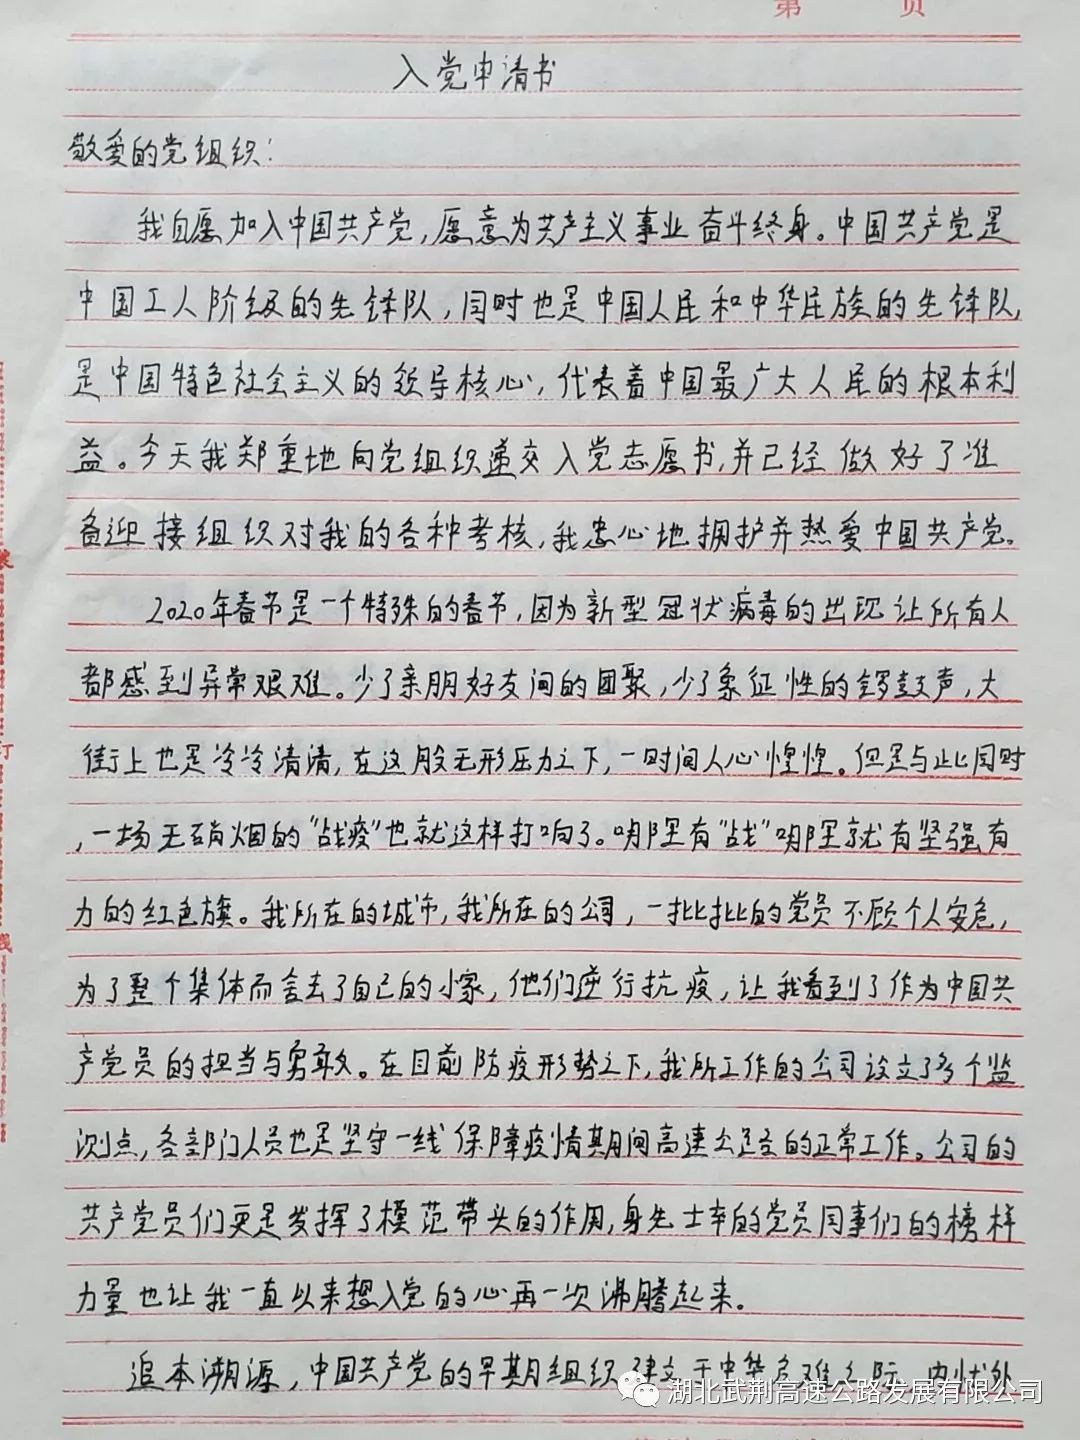 第 页
入党申请书
敬爱的党组织:
我自愿加入中国共产党,愿意为共产主义事业奋斗终身。中国共产党是
中国工人阶级的先锋队,同时也是中国人民和中华民族的先锋队,
是中国特色社会主义的领导核心,代表着中国最广大人民的根本利
益。今天我郑重地向党组织递交入党志愿书,并已经做好了准
备迎接组织对我的各种考核,我忠心地拥护并热爱中国共产党。
2020年春节是一个特殊的春节,因为新型冠状病毒的出现让所有人
都感到异常艰难。少了亲朋好友间的团聚,少了象征性的锣鼓声,大
街上也是冷冷清清,在这股无形压力之下,一时间人心惶惶。但是与此同时
,一场无硝烟的“战疫”也就这样打响了。哪里有“战”哪里就有坚强有
力的红色旗。我所在的城市,我所在的公司,一批批的党员不顾个人安危,
为了整个集体而舍去了自己的小家,他们逆行抗疫,让我看到了作为中国共
产党员的担当与勇敢。在目前防疫形势之下,我所工作的公司设立了多个监
测点,各部门人员也是坚守一线保障疫情期间高速公路的正常工作。公司的
共产党员们更是发挥了模范带头的作用,身先士卒的党员同事们的榜样
力量也让我一直以来想入党的心再一次沸腾起来。
追本溯源,中国共产党的早期组织建立于中华危难之际,内忧外
装
订
线
湖北武荆高速公路发展有限公司